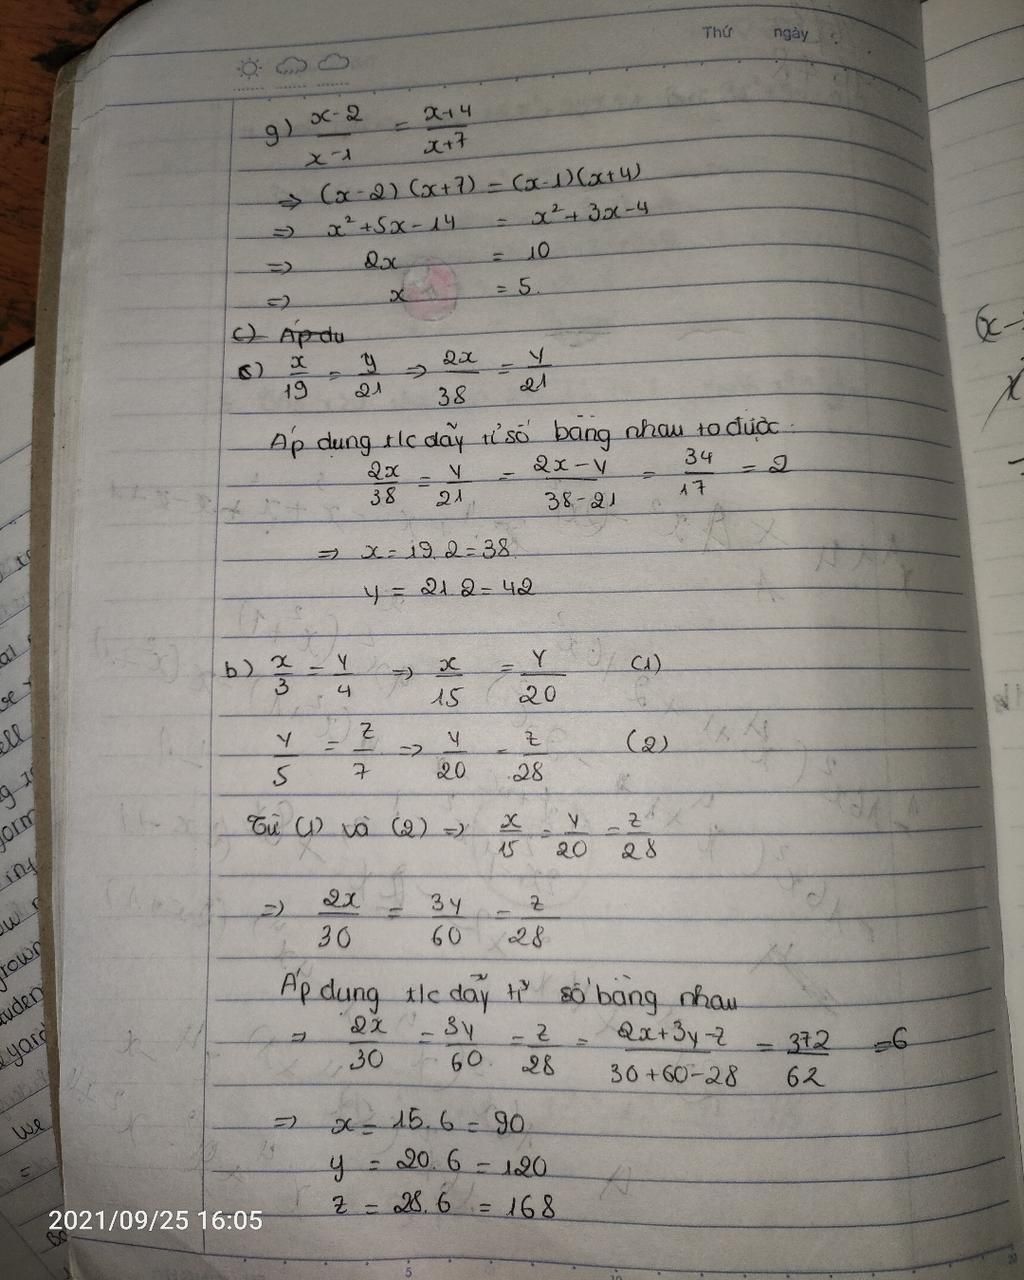 Thứ ngày
g) x-2/x-1 = x+4/x+7
=> (x-2)(x+7) = (x-1)(x+4)
=> x²+5x-14 = x²+3x-4
=> 2x = 10
=> x = 5.
c) Áp du
c) x/19 = y/21 => 2x/38 = y/21
Áp dung t/c dãy tỉ số bằng nhau ta được
2x/38 = y/21 = 2x-y/38-21 = 34/17 = 2
=> x = 19.2 = 38
y = 21.2 = 42
b) x/3 = y/4 => x/15 = y/20 (1)
y/5 = z/7 => y/20 = z/28 (2)
Từ (1) và (2) => x/15 = y/20 = z/28
=> 2x/30 = 3y/60 = z/28
Áp dung t/c dãy tỉ số bằng nhau
=> 2x/30 = 3y/60 = z/28 = 2x+3y-z/30+60-28 = 372/62 = 6
=> x = 15.6 = 90
y = 20.6 = 120
z = 28.6 = 168
2021/09/25 16:05
5